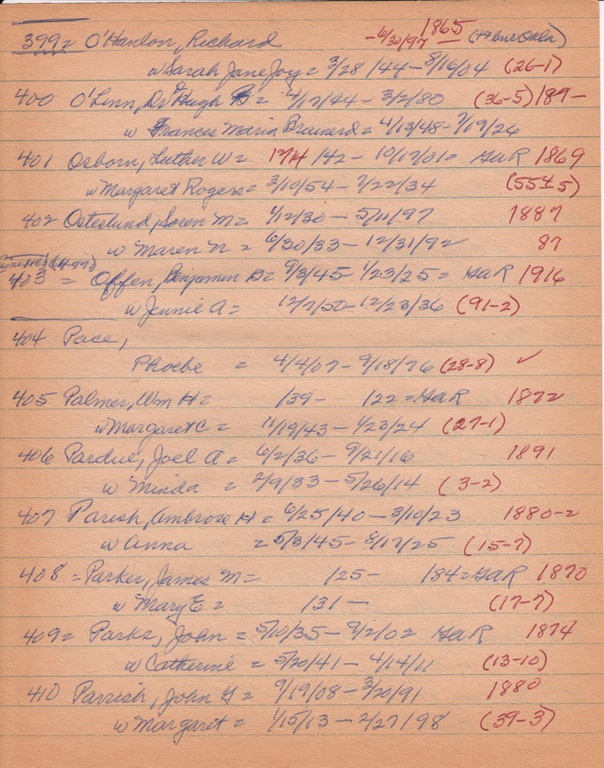 399 = O'Hanlon, Richard -6/30/97 1865
w Sarah Jane Joy = 3/28/44 - 8/16/04 (26-1)
400 O'Linn, Dr Hugh = 4/12/44 - 3/2/80 (36-5) 189-
w Frances Maria Brainerd = 4/13/48 - 7/19/26
401 Osborn, Luther W = /42 - 10/17/01 = GAR 1869
w Margaret Rogers = 3/10/54 - 7/22/34 (55 5)
402 Osterlund, Soren M = 1/12/30 - 5/11/97 1887
w Maren N = 6/30/33 - 12/31/92 87
403 = Offen, Benjamin = 9/3/45 - 1/23/25 = GAR 1916
w Jennie A = 12/7/50 - 12/23/36 (91-2)
404 Pace,
Phoebe = 4/4/07 - 9/18/76 (28-8) ✓
405 Palmer, Wm H = /39 - /22 = GAR 1872
w Margaret C = 11/19/43 - 1/23/24 (27-1)
406 Pardue, Joel A = 6/2/36 - 9/21/16 1891
w Minda = 2/9/33 - 5/26/14 (3-2)
407 Parish, Ambrose H = 6/25/40 - 3/10/23 1880-2
w Anna = 5/3/45 - 8/17/25 (15-7)
408 = Parker, James M = /25 - /84 = GAR 1870
w Mary E = /31 - (17-7)
409 = Parks, John = 5/10/35 - 9/2/02 GAR 1874
w Catherine = 5/20/41 - 4/14/11 (13-10)
410 Parrish, John G = 9/19/08 - 3/20/91 1880
w Margaret = 1/15/13 - 2/27/98 (39-3)